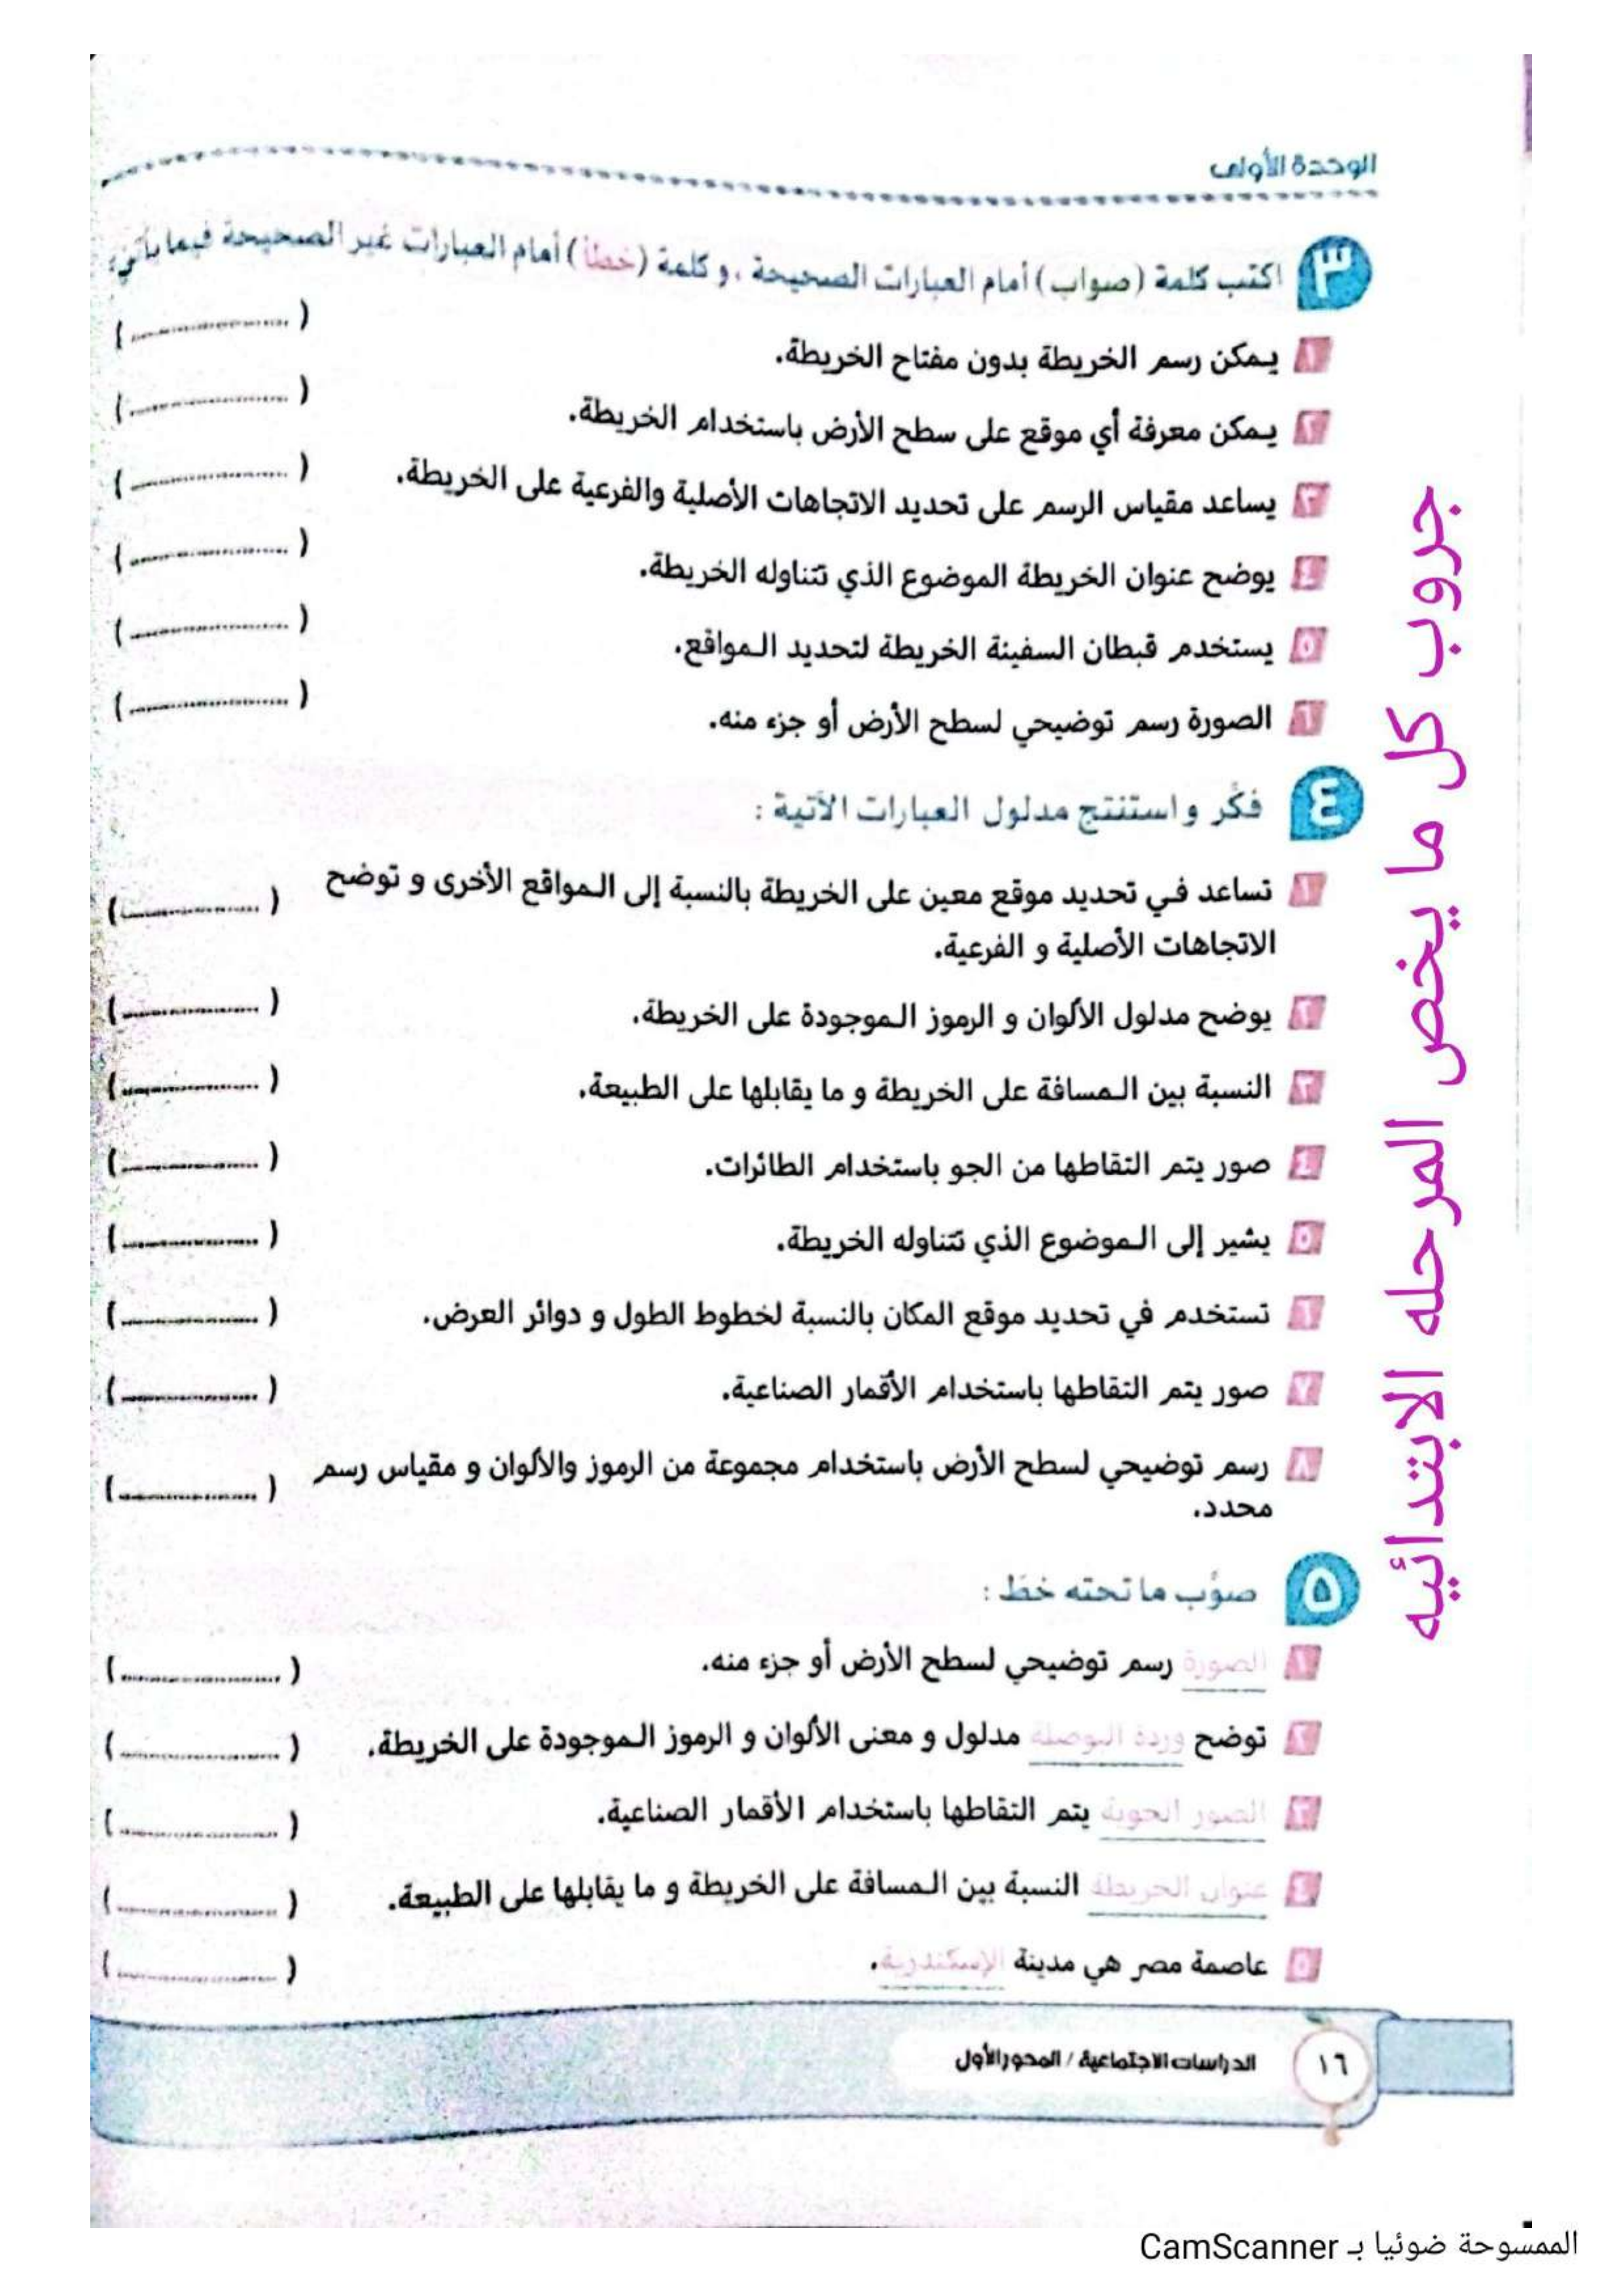 الوحدة الأولى
٣ اكتب كلمة (صواب) أمام العبارات الصحيحة، و كلمة (خطأ) أمام العبارات غير الصحيحة فيما يأتي:
١ يمكن رسم الخريطة بدون مفتاح الخريطة. (....................)
٢ يمكن معرفة أي موقع على سطح الأرض باستخدام الخريطة. (....................)
٣ يساعد مقياس الرسم على تحديد الاتجاهات الأصلية والفرعية على الخريطة. (....................)
٤ يوضح عنوان الخريطة الموضوع الذي تتناوله الخريطة. (....................)
٥ يستخدم قبطان السفينة الخريطة لتحديد المواقع. (....................)
٦ الصورة رسم توضيحي لسطح الأرض أو جزء منه. (....................)
٤ فكّر و استنتج مدلول العبارات الآتية :
١ تساعد في تحديد موقع معين على الخريطة بالنسبة إلى المواقع الأخرى و توضح (....................)
الاتجاهات الأصلية و الفرعية.
٢ يوضح مدلول الألوان و الرموز الموجودة على الخريطة. (....................)
٣ النسبة بين المسافة على الخريطة و ما يقابلها على الطبيعة. (....................)
٤ صور يتم التقاطها من الجو باستخدام الطائرات. (....................)
٥ يشير إلى الموضوع الذي تتناوله الخريطة. (....................)
٦ تستخدم في تحديد موقع المكان بالنسبة لخطوط الطول و دوائر العرض. (....................)
٧ صور يتم التقاطها باستخدام الأقمار الصناعية. (....................)
٨ رسم توضيحي لسطح الأرض باستخدام مجموعة من الرموز والألوان و مقياس رسم (....................)
محدد.
٥ صوّب ما تحته خط :
١ الصورة رسم توضيحي لسطح الأرض أو جزء منه. (....................)
٢ توضح وردة البوصلة مدلول و معنى الألوان و الرموز الموجودة على الخريطة. (....................)
٣ الصور الجوية يتم التقاطها باستخدام الأقمار الصناعية. (....................)
٤ عنوان الخريطة النسبة بين المسافة على الخريطة و ما يقابلها على الطبيعة. (....................)
٥ عاصمة مصر هي مدينة الإسكندرية. (....................)
١٦ الدراسات الاجتماعية / المحور الأول
جروب كل ما يخص المرحله الابتدائيه
الممسوحة ضوئيا بـ CamScanner